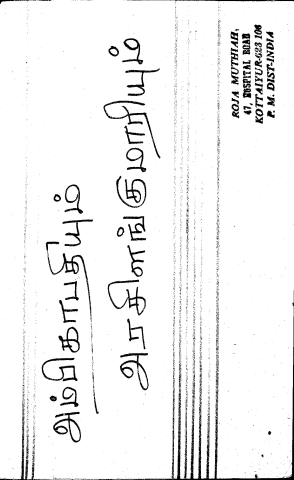 அம்பிகாபதியும்
அரசிளங்குமாரியும்
ROJA MUTHIAH,
47, HOSPITAL ROAD
KOTTAIYUR-623 106
P. M. DIST-INDIA